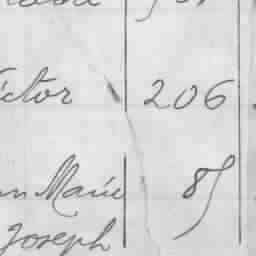 ictor 206
n Marie 85
Joseph